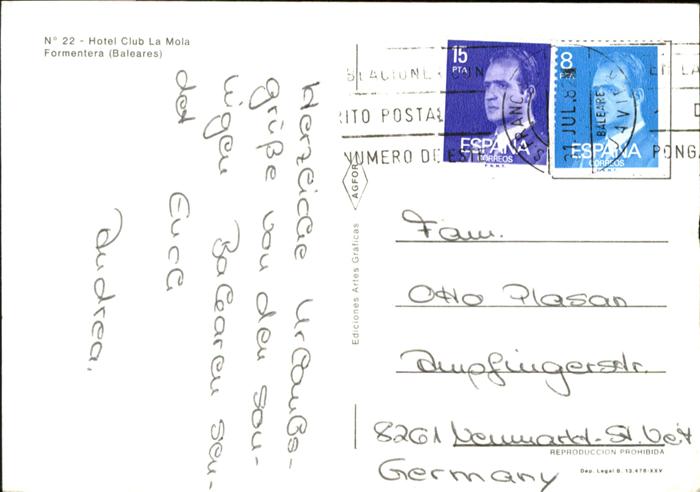 Nº 22 - Hotel Club La Mola
Formentera (Baleares)
Herzliche Urlaubs-
grüße von den son-
nigen Balearen sen-
det Euch
Andrea.
15
PTA
ESPAÑA
CORREOS
8
PTA
ESPAÑA
CORREOS
RITO POSTAL
NUMERO DE
PONGA
JUL.8
BALEARE
AGFOR
Ediciones Artes Gráficas
Fam.
Otto Plasan
Ampfingerstr.
8261 Neumarkt-St. Veit
Germany
REPRODUCCION PROHIBIDA
Dep. Legal B. 13.476-XXV